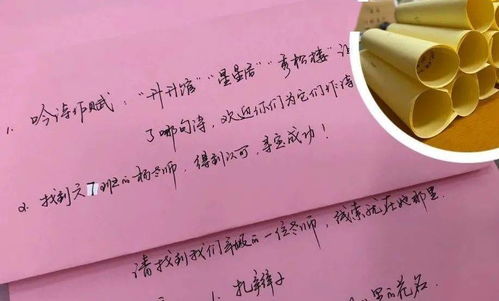 1. 吟诗作赋:"升升馆""星星居""秀松楼"
了哪句诗,欢迎你们为它们作诗
2. 找到六7班的杨老师,得到认可,寻宝成功!
请找到我们年级的一位老师,线索就在她那里.
1. 扎辫子
里的花名.